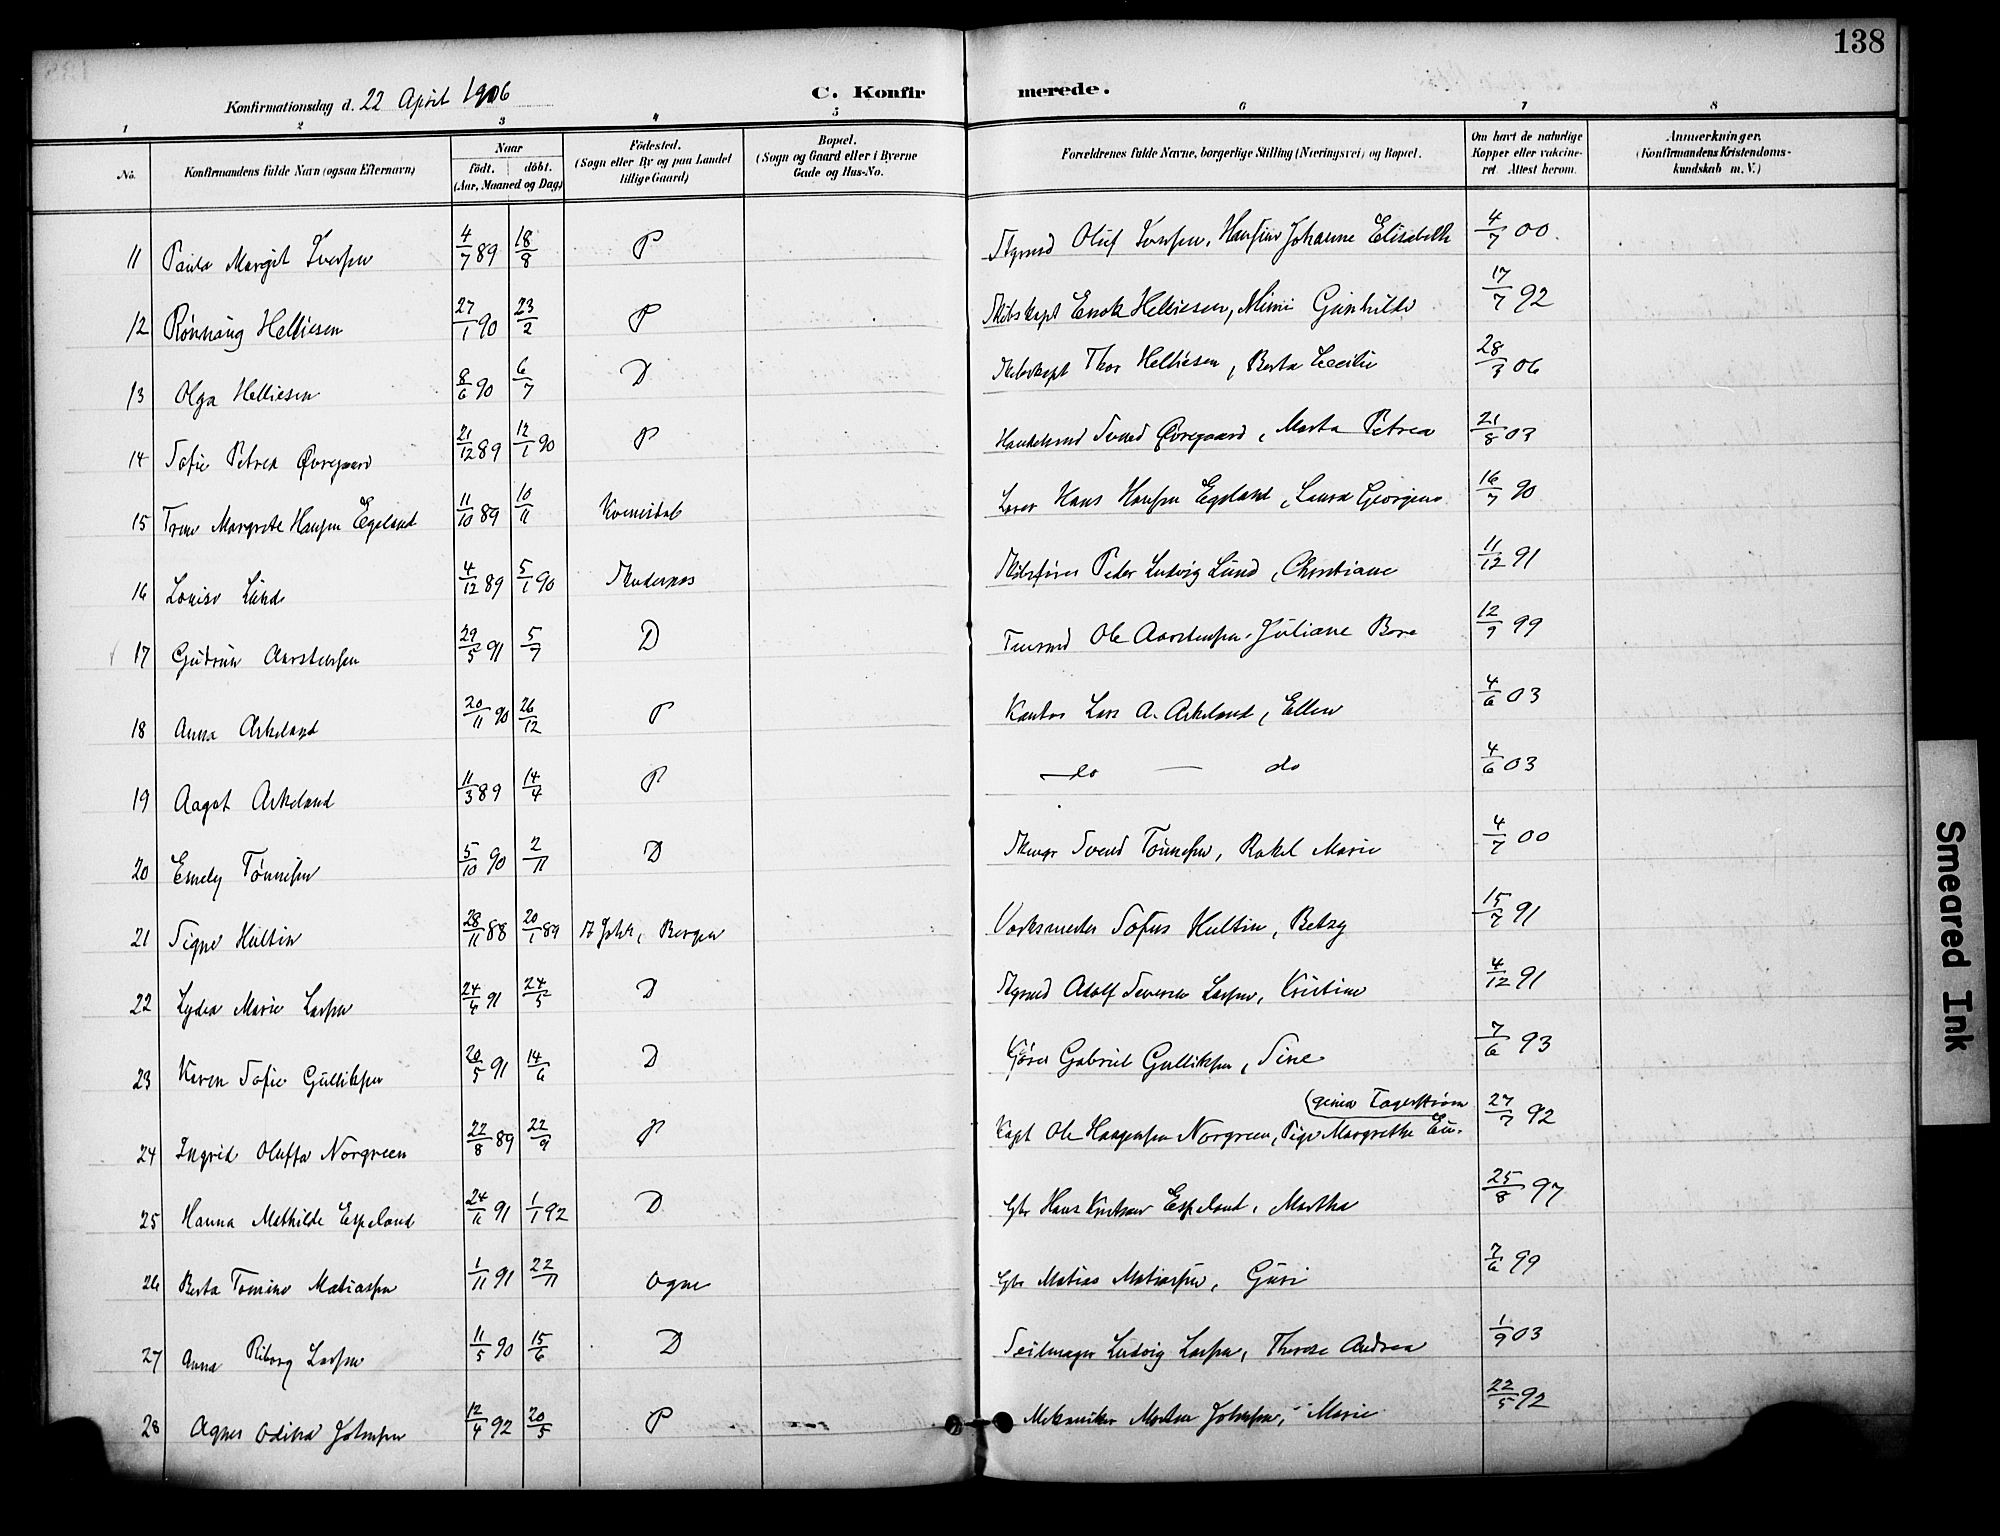 138
Konfirmationsdag d. 22 April 1906
C. Konfirmerede.
1 2 3 4 5 6 7 8
No.
Konfirmandens fulde Navn (ogsaa Efternavn)
Naar
födt. döbt.
(Aar, Maaned og Dag)
Födested.
(Sogn eller By og paa Landet
tillige Gaard)
Bopæl.
(Sogn og Gaard eller i Byerne
Gade og Hus-No.
Forældrenes fulde Navne, borgerlige Stilling (Næringsvei) og Bopæl.
Om havt de naturlige
Kopper eller vakcine-
ret. Attest herom.
Anmærkninger.
(Konfirmandens Kristendoms-
kundskab m. V.)
11 Paula Margit Iversen 4/7 89 18/8 P Styrmd Oluf Iversen, Hansine Johanne Elisabeth 4/7 00
12 Rönnaug Helliesen 27/1 90 23/2 P Skibskapt Enok Helliesen, Mimi Gunhilde 17/7 92
13 Olga Helliesen 8/6 90 6/7 D Skibskapt Thor Helliesen, Berta Cecilie 28/3 06
14 Sofie Petrea Øvregaard 21/12 89 12/1 90 P Handelsmd Svend Øvregaard, Marta Petrea 21/8 03
15 Trine Margrete Hansen Egeland 11/10 89 10/11 Kvinesdal Hans Hansen Egeland, Laura Georgine 16/7 90
16 Louise Lund 4/12 89 5/1 90 Skudesnes Skibsfører Peder Ludvig Lund, Christiane 11/12 91
17 Gudrun Aarstensen 29/5 91 5/7 D Ole Aarstensen, Juliane Bore 12/9 99
18 Anna Askeland 20/11 90 26/12 P Kantor Lars A. Askeland, Ellen 4/6 03
19 Aagot Askeland 11/3 89 14/4 P do — do 4/6 03
20 Emely Tönnesen 5/10 90 2/11 D Svend Tönnesen, Rakel Marie 4/7 00
21 Signe Hultin 28/11 88 20/1 89 St Joh, Bergen Verksmester Sofus Hultin, Betsy 15/7 91
22 Lydia Marie Larsen 24/4 91 24/5 D Styrmd Adolf Severin Larsen, Kristine 4/12 91
23 Karen Sofie Gulliksen 20/5 91 14/6 D Kjører Gabriel Gulliksen, Sine 7/6 93
(genia Fagerstrøm
24 Ingrid Oluffa Norgreen 22/8 89 22/9 P Kapt Ole Haagensen Norgreen, Pige Margrethe Eu- 27/7 92
25 Hanna Mathilde Espeland 24/11 91 1/1 92 D Gbr Hans Knutsen Espeland, Martha 25/8 97
26 Berta Tomine Matiassen 1/11 91 22/11 Ogne Gbr Matias Matiassen, Guri 7/6 99
27 Anna Riborg Larsen 11/5 90 15/6 D Seilmager Ludvig Larsen, Therese Andrea 1/9 03
28 Agnes Odilia Johnsen 12/4 92 20/5 P Mekaniker Morten Johnsen, Marie 22/5 92
Smeared Ink